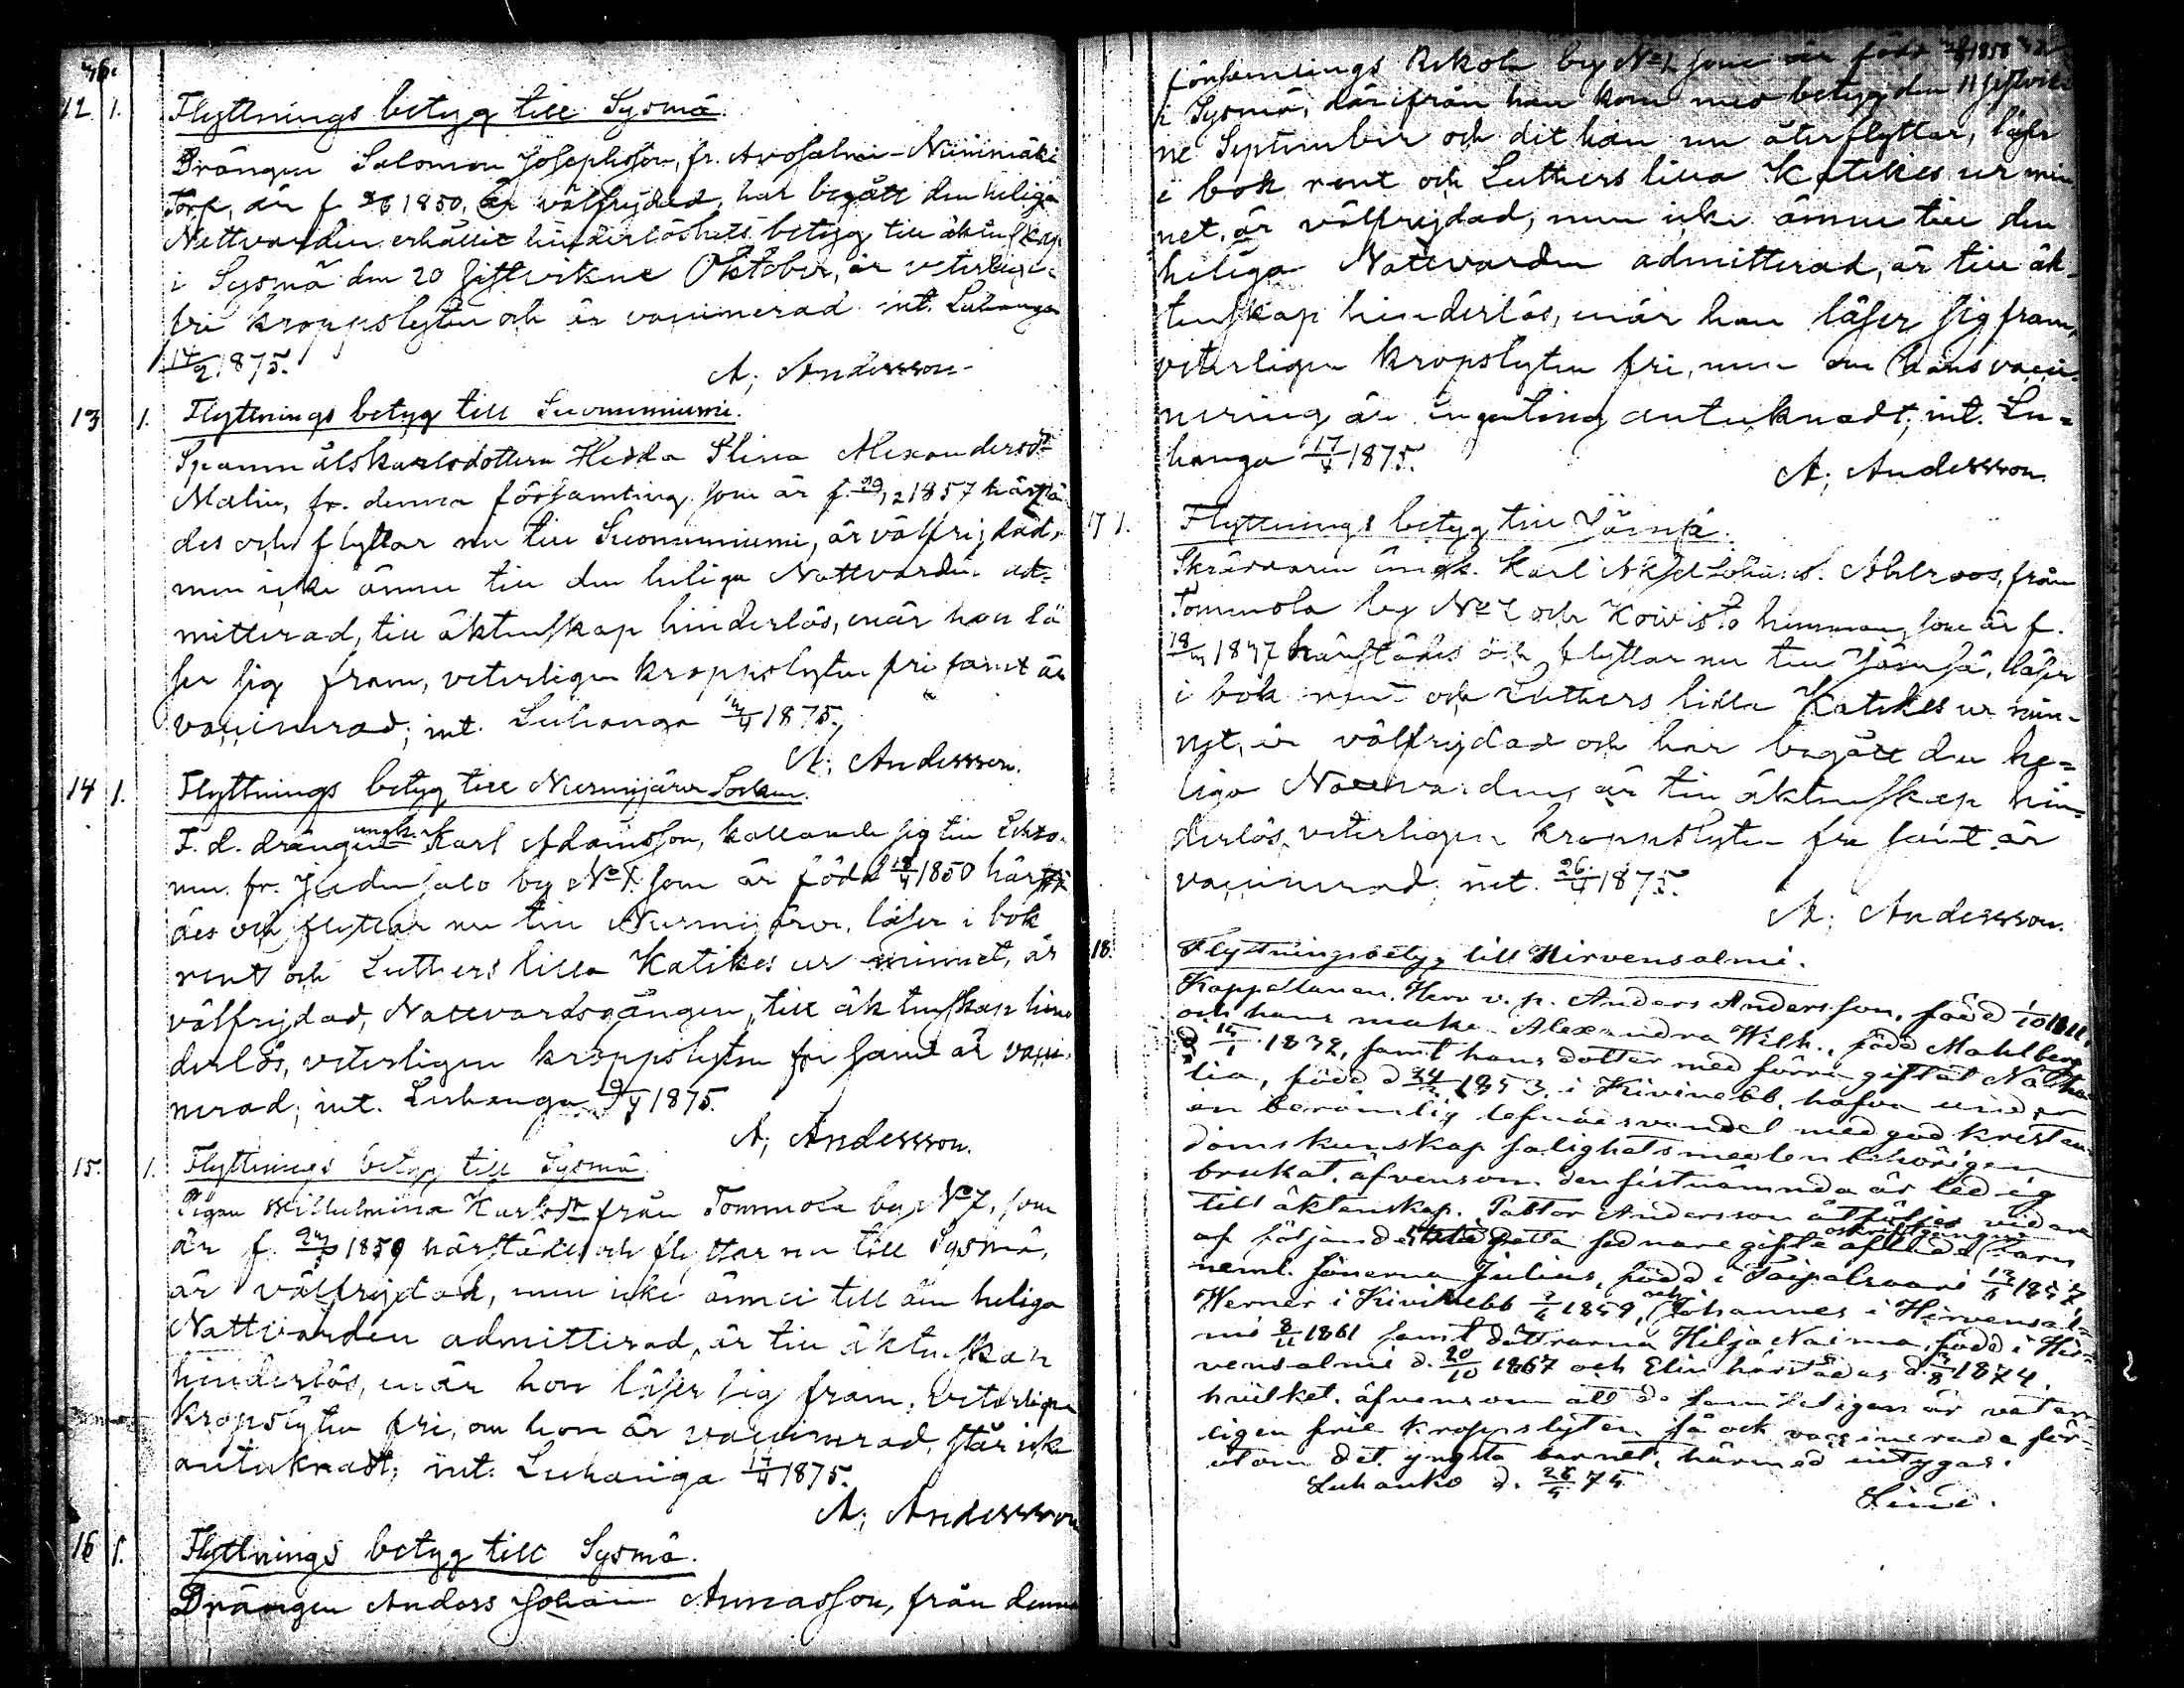 76.
12. 1. Flyttnings betyg till Sysmä.
Drängen Salomon Josephsson, fr. Avosalmi-Niinimäki
Torp, är f. 1850, är välfrejdad, har begått den heliga
Nattvarden erhållit hinderlöshets betyg till äktenskap
i Sysmä den 20 sistvikne Oktober, är veterligen
fri kroppslyten och är vaccinerad int. Luhanga
14/2 1875.
A; Andersson
13 1. Flyttnings betyg till Suoniemi.
Spannmålskarlsdottern Hedda Stina Alexandersdr
Malin, fr. denna församling som är f. 29/12 1857 härstä
des och flyttar nu till Suoniemi, är välfrejdad,
men icke ännu till den heliga Nattvarden ad-
mitterad, till äktenskap hinderlös, enär hon lä
ser sig fram, veterligen kroppslyten fri samt är
vaccinerad; int. Luhanga 14/4 1875.
A; Andersson.
14 1. Flyttnings betyg till Nurmijärvi Socken.
F. d. drängen ungk. Karl Adamsson, kallande sig till
nen. fr. Judinsalo by No som är född 18/4 1850 härstä
des och flyttar nu till Nurmijärvi, läser i bok
rent och Luthers lilla Katikes ur minnet, är
välfrejdad, Nattvardsgången, till äktenskap hin
derlös, veterligen kroppslyten fri samt är vacci
nerad; int. Luhanga 9/4 1875.
A; Andersson.
15. 1. Flyttnings betyg till Sysmä
Pigan Wilhelmina Karlsdr från Tommola by No 7, som
är f. 1859 härstädes och flyttar nu till Sysmä,
är välfrejdad, men icke ännu till den heliga
Nattvarden admitterad, är till äktenskap
hinderlös, enär hon läser sig fram, veterligen
kropslyten fri, om hon är vaccinerad, står icke
antecknadt; int. Luhanga 17/4 1875.
A; Andersson
16 1. Flyttnings betyg till Sysmä.
Drängen Anders Johan Annasson, från denna
församlings by No 1 som är född 1858
i Sysmä, därifrån han kom med betyg den 11 sistvik
ne September och dit han nu återflyttar, läser
i bok rent och Luthers lilla Katikes ur min
net, är välfrejdad, men icke ännu till den
heliga Nattvarden admitterad, är till äk-
tenskap hinderlös, enär han läser sig fram,
veterligen kropslyten fri, men om hans vacci-
nering är ingenting antecknadt; int. Lu-
hanga 17/4 1875.
A; Andersson.
17 1. Flyttnings betyg till Jämsä.
Skräddaren ungk. Karl Axel Ahlroos, från
Tommola by No 7 och Koivisto hemman, som är f.
1847 härstädes och flyttar nu till Jämsä, läser
i bok rent och Luthers lilla Katikes ur min-
net, är välfrejdad och har begått den he-
liga Nattvarden, är till äktenskap hin-
derlös, veterligen kroppslyten fri samt är
vaccinerad; int. 26/4 1875.
A; Andersson.
18. Flyttningsbetyg till Hirvensalmi.
Kappellanen, Herr v. p. Anders Andersson, född
och hans maka Alexandra Wilh., född Mahlberg
d 1832, samt hans dotter med förra giftet Natha
lia, född d 24/2 1853 i Kivinebb, hafva under
en berömlig lefnadsvandel med god kristen
domskunskap salighetsmedlen behörigen
brukat, äfvensom den sistnämnda är ledig
till äktenskap. Pastor Andersson åtföljes vidare
af följande detta sednare gifte aflade oskriftgångna barn
neml. sönerna Julius, född i Taipalsaari 1857,
Werner i Kivinebb 1859, och Johannes i Hirvensal-
mi 8/11 1861 samt döttrarna Hilja Naima, född i Hir-
vensalmi d. 20/10 1867 och Elin härstädes d. 1874,
hvilket, äfvensom att de samteligen är veter
ligen frie kroppslyten så ock vaccinerade för-
utom det yngsta barnet, härmed intygas.
Luhanko d. 28/4 75